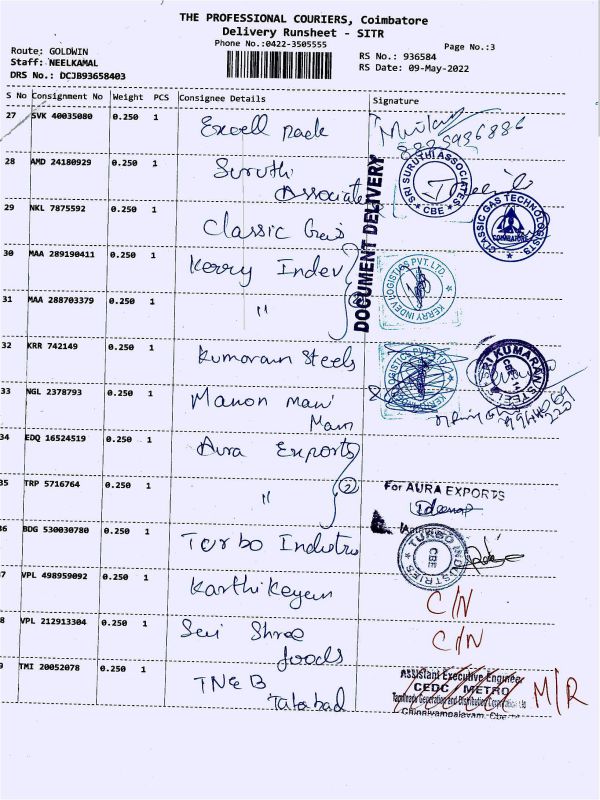 THE PROFESSIONAL COURIERS, Coimbatore
Delivery Runsheet - SITR
Phone No.:0422-3505555
Page No.:3
Route: GOLDWIN
Staff: NEELKAMAL
DRS No.: DCJB93658403
RS No.: 936584
RS Date: 09-May-2022
S No Consignment No Weight PCS Consignee Details Signature
27 SVK 40035080 0.250 1 Excell pack
8825936886
28 AMD 24180929 0.250 1 Suruthi
Associate
SRI SURUTHI ASSOCIATES
* CBE *
DOCUMENT DELIVERY
29 NKL 7875592 0.250 1 Classic Gas
CLASSIC GAS TECHNOLOGISTS
COIMBATORE
30 MAA 289190411 0.250 1 Kerry Indev
KERRY INDEV LOGISTICS PVT. LTD.
31 MAA 288703379 0.250 1 "
2
32 KRR 742149 0.250 1 Kumaran Steels
LOGISTICS PVT. LTD.
SRI KUMARAN STEELS
33 NGL 2378793 0.250 1 Manon mani
Mam
34 EDQ 16524519 0.250 1 Aura Exports
35 TRP 5716764 0.250 1 "
2
For AURA EXPORTS
36 BDG 530030780 0.250 1 Turbo Industru
TURBO INDUSTRIES
CBE
7 VPL 498959092 0.250 1 Karthikeyan
C/N
8 VPL 212913304 0.250 1 Sri Shree
foods
C/N
9 TMI 20052078 0.250 1 TNEB
Tatabad
Assistant Executive Engineer
CEDC METRO
Tamilnadu Generation and Distribution Corporation Ltd
M/R